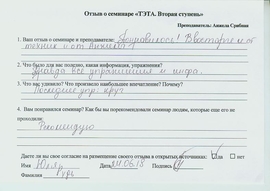 Отзыв о семинаре «ТЭТА. Вторая ступень»
Преподаватель: Анжела Срибная
1. Ваш отзыв о семинаре и преподавателе: Понравилось! В восторге и от
техник и от Анжелы!
2. Что было для вас полезно, какая информация, упражнения?
Правда все упражнения и инфо.
3. Что вас удивило? Что произвело наибольшее впечатление? Почему?
Последнее упр. круг
4. Вам понравился семинар? Как бы вы порекомендовали семинар людям, которые еще его не
проходили:
Рекомендую
Даете ли вы свое согласие на размещение своего отзыва в открытых источниках: да нет
Имя Дата .06.18 Подпись
Фамилия